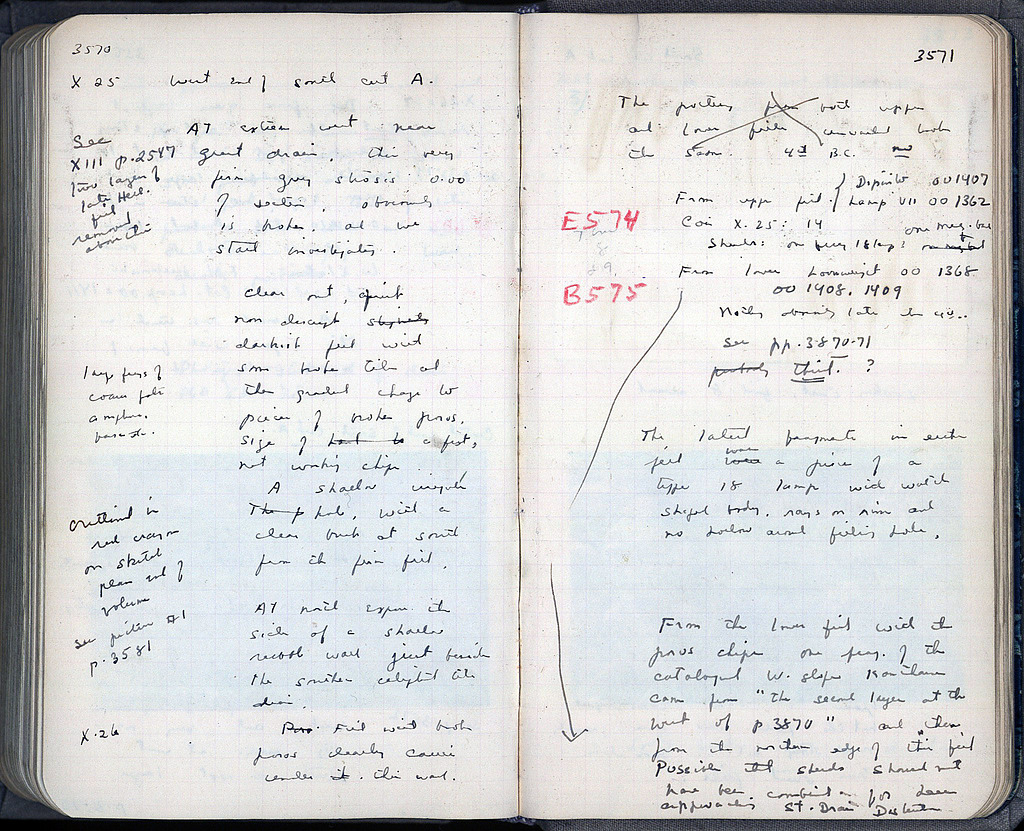 3570
X 25 West end of south cut A.
See
XIII p. 2547
two layers of
late Hell.
fill
removed
above this
At extreme west near
great drain, the very
firm grey strosis 0.00
of section, obviously
is broken and we
start investigating.
clear out, quite
non descript
darkish fill with
some broken tiles and
then gradual change to
pieces of broken poros,
size of a fist,
not working chips.
large frags of
coarse
amphora,
A shallow irregular
hole, with a
clear break at south
from the firm fill.
Outlined in
red crayon
on sketch
plan end of
volume
See picture #1
p. 3581
At north expose the
side of a shallow
rubble wall just beside
the southern tile
drain.
X. 26
Fill with broken
poros clearly coming
under this wall.
3571
The pottery from both upper
and lower fills both
the same. 4th B.C. no
From upper fill Dipinto OO 1407
Lamp VII OO 1362
E574
Coin X.25: 14
Sherds: one frag 18 lamp:
From lower Loomweight OO 1368
B575
OO 1408, 1409
Nothing obviously later than 4th..
see pp. 3870-71
probably third. ?
The latest fragments in either
fill were a piece of a
type 18 lamp with watch
shaped body, rays on rim and
no hollow around filling hole.
From the lower fill with the
poros chips one frag. of the
catalogued W. slope Kantharos
came from "the second layer at the
west of p 3870" and then
from the northern edge of "this fill
Possible that sherds should not
have been combined
St. Drain